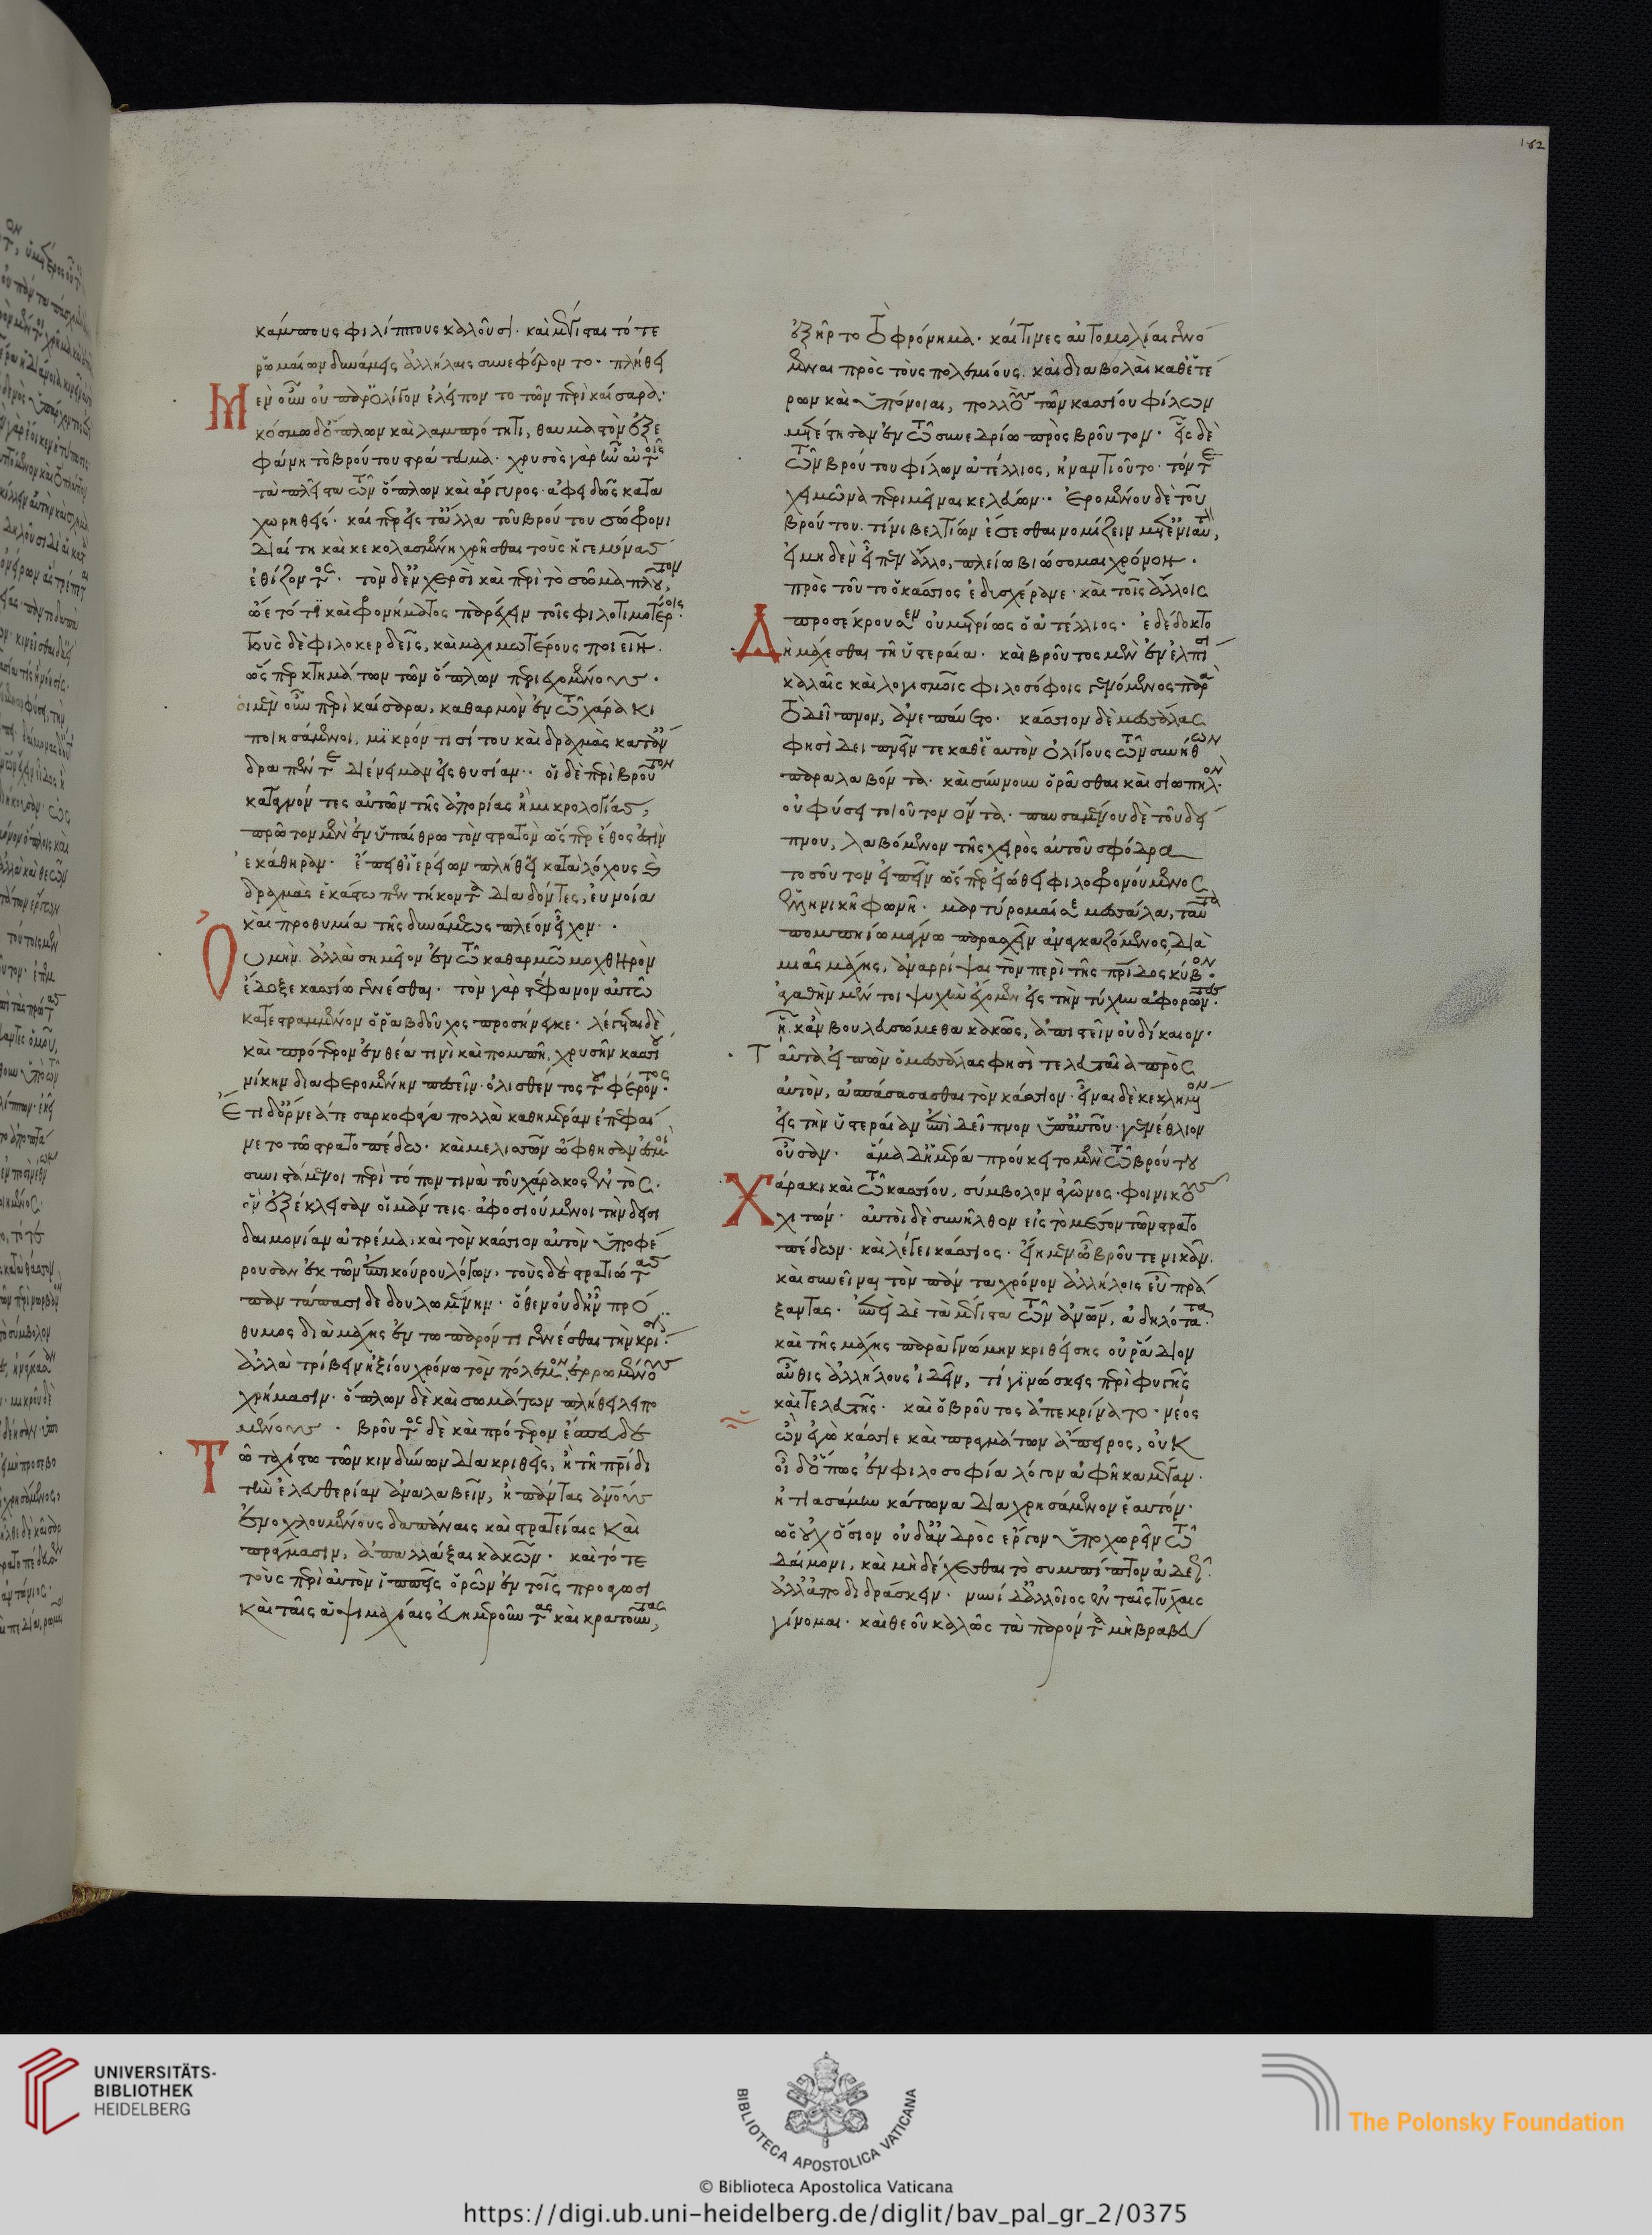 162
κάμπους φιλίππους καλοῦσι· καὶ μέγισται τότε
ῥωμαίων δυνάμεις ἀλλήλαις συνεφέροντο· πλήθει
Μὲν οὖν οὐ παρ' ὀλίγον ἐλείποντο τῶν περὶ καίσαρα·
κόσμω δ' ὅπλων καὶ λαμπρότητι, θαυμαστὸν ἐξε
φαίνη τὸ βρούτου στράτευμα· χρυσὸς γὰρ ἦν αὐτοῖς
τὰ πλεῖστα τῶν ὅπλων καὶ ἄργυρος· ἀφειδῶς κατα
χωρηθείς· καίπερ εἰς τἄλλα τοῦ βρούτου σώφρονι
διαίτη καὶ κεκολασμένη χρῆσθαι τοὺς ἡγεμόνας
ἐθίζοντος· τὸν δ' ἐν χερσὶ καὶ περὶ τὸ σῶμα πλοῦτον,
ᾤετό τι καὶ φρονήματος παρέχειν τοῖς φιλοτιμοτέροις·
τοὺς δὲ φιλοκερδεῖς, καὶ μαχιμωτέρους ποιεῖν·
ὥσπερ κτημάτων τῶν ὅπλων περιεχομένους·
οἱ μὲν οὖν περὶ καίσαρα, καθαρμὸν ἐν τῶ χάρακι
ποιησάμενοι, μικρόν τι σίτου καὶ δραχμὰς κατ' ἄν
δρα πέντε διένειμαν εἰς θυσίαν· οἱ δὲ περὶ βροῦτον
καταγνόντες αὐτῶν τῆς ἀπορίας ἢ μικρολογίας,
πρῶτον μὲν ἐν ὑπαίθρω τὸν στρατὸν ὥσπερ ἔθος ἐστὶν
ἐκάθηραν· ἔπειθ' ἱερείων πλήθη κατὰ λόχους καὶ
δραχμὰς ἑκάστω πεντήκοντα διαδόντες, εὐνοία
καὶ προθυμία τῆς δυνάμεως πλέον εἶχον·
Οὐ μὴν ἀλλὰ σημεῖον ἐν τῶ καθαρμῶ μοχθηρὸν
ἔδοξε κασσίω γενέσθαι· τὸν γὰρ στέφανον αὐτῶ
κατεστραμμένον ὁ ῥαβδοῦχος προσήνεγκε· λέγεται δὲ
καὶ πρότερον ἐν θέα τινὶ καὶ πομπῆ, χρυσῆν κασσίου
νίκην διαφερομένην πεσεῖν· ὀλισθέντος τοῦ φέροντος·
Ἔτι δ' ὄρνεά τε σαρκοφάγα πολλὰ καθημέραν ἐπεφαί
νετο τῶ στρατοπέδω· καὶ μελισσῶν ὤφθησαν ἑσμοὶ
συνιστάμενοι περὶ τόπον τινὰ τοῦ χάρακος ἐντὸς·
ὃν ἐξέκλεισαν οἱ μάντεις· ἀφοσιούμενοι τὴν δεισι
δαιμονίαν ἀτρέμα, καὶ τὸν κάσσιον αὐτὸν ὑποφέ
ρουσαν ἐκ τῶν ἐπικούρου λόγων, τοὺς δὲ στρατιώτας
παντάπασι δεδουλωμένην· ὅθεν οὐδ' ἦν πρό
θυμος διὰ μάχης ἐν τῶ παρόντι γενέσθαι τὴν κρίσιν·
ἀλλὰ τρίβειν ἠξίου χρόνω τὸν πόλεμον, ἐρρωμένους
χρήμασιν· ὅπλων δὲ καὶ σωμάτων πλήθει λειπο
μένους· βροῦτος δὲ καὶ πρότερον ἔσπευδε
Τῶ ταχίστω τῶν κινδύνων διακριθεὶς, ἢ τῆ πατρίδι
τὴν ἐλευθερίαν ἀναλαβεῖν, ἢ πάντας ἀνθρώπους
ἐνοχλουμένους δαπάναις καὶ στρατείαις καὶ
πράγμασιν, ἀπαλλάξαι κακῶν· καὶ τότε
τοὺς περὶ αὐτὸν ἱππεῖς ὁρῶν ἐν τοῖς προαγωσι
καὶ ταῖς ἁψιμαχίαις εὐημεροῦντας καὶ κρατοῦντας,
ἐξῆρτο τὸ φρόνημα· καί τινες αὐτομολίαι γενό
μεναι πρὸς τοὺς πολεμίους· καὶ διαβολαὶ καθ' ἑτέ
ρων καὶ ὑπόνοιαι, πολλοὺς τῶν κασσίου φίλων
μετέστησαν ἐν τῶ συνεδρίω πρὸς βροῦτον· εἷς δὲ
τῶν βρούτου φίλων ἀτέλλιος, ἠναντιοῦτο· τόν τε
χειμῶνα περιμεῖναι κελεύων· ἐρομένου δὲ τοῦ
βρούτου· τίνι βελτίων ἔσεσθαι νομίζειν μετ' ἐνιαυτὸν,
εἰ μηδὲν εἶπεν ἄλλο, πλείω βιώσομαι χρόνον·
πρὸς τοῦτο ὁ κάσσιος ἐδυσχέρανε· καὶ τοῖς ἄλλοις
προσέκρουσεν οὐ μετρίως ὁ ἀτέλλιος· ἐδέδοκτο
Δὴ μάχεσθαι τῆ ὑστεραία· καὶ βροῦτος μὲν ἐν ἐλπίσι
καλαῖς καὶ λογισμοῖς φιλοσόφοις γενόμενος παρὰ
τὸ δεῖπνον, ἀνεπαύετο· κάσσιον δὲ μεσσάλας
φησὶ δειπνεῖν τε καθ' ἑαυτὸν ὀλίγους τῶν συνήθων
παραλαβόντα· καὶ σύννουν ὁρᾶσθαι καὶ σιωπηλὸν·
οὐ φύσει τοιοῦτον ὄντα· παυσαμένου δὲ τοῦ δεί
πνου, λαβόμενον τῆς χειρὸς αὐτοῦ σφόδρα
τοσοῦτον εἰπεῖν ὥσπερ εἰώθει φιλοφρονούμενος
ἑλληνικῆ φωνῆ· μαρτύρομαί σε μεσσάλα, ταυτὰ
πομπηίω μάγνω πάσχειν ἀναγκαζόμενος, διὰ
μιᾶς μάχης, ἀναρρίψαι τὸν περὶ τῆς πατρίδος κύβον·
ἀγαθὴν μέντοι ψυχὴν ἔχομεν εἰς τὴν τύχην ἀφορῶντας·
ἣ κἂν βουλευσώμεθα κακῶς, ἀπιστεῖν οὐ δίκαιον·
Ταῦτα εἰπὼν ὁ μεσσάλας φησὶ τελευταῖα πρὸς
αὐτὸν, ἀσπάσασθαι τὸν κάσσιον· εἶναι δὲ κεκλημένον
εἰς τὴν ὑστεραίαν ἐπὶ δεῖπνον ὑπ' αὐτοῦ· γενέθλιον
οὖσαν· ἅμα δ' ἡμέρα προύκειτο μὲν τῶ βρούτου
Χάρακι καὶ τῶ κασσίου, σύμβολον ἀγῶνος· φοινικοῦς
χιτών· αὐτοὶ δὲ συνῆλθον εἰς τὸ μέσον τῶν στρατο
πέδων· καὶ λέγει κάσσιος· εἴη μὲν ὦ βροῦτε νικᾶν·
καὶ συνεῖναι τὸν πάντα χρόνον ἀλλήλοις εὖ πρά
ξαντας· ἐπεὶ δὲ τὰ μέγιστα τῶν ἀνθρωπίνων, ἀδηλότατα·
καὶ τῆς μάχης παρὰ γνώμην κριθείσης οὐ ῥάδιον
αὖθις ἀλλήλους ἰδεῖν, τί γινώσκεις περὶ φυγῆς
καὶ τελευτῆς· καὶ ὁ βροῦτος ἀπεκρίνατο· νέος
ὢν ἐγὼ κάσσιε καὶ πραγμάτων ἄπειρος, οὐκ
οἶδ' ὅπως ἐν φιλοσοφία λόγον ἀφῆκα μέγαν·
ἠτιασάμην κάτωνα διαχρησάμενον ἑαυτόν·
ὡς οὐχ ὅσιον οὐδ' ἀνδρὸς ἔργον ὑποχωρεῖν τῶ
δαίμονι, καὶ μὴ δέχεσθαι τὸ συμπῖπτον ἀδεῶς·
ἀλλ' ἀποδιδράσκειν· νυνὶ δ' ἀλλοῖος ἐν ταῖς τύχαις
γίνομαι· καὶ θεοῦ καλῶς τὰ παρόντα μὴ βραβεύ
UNIVERSITÄTS-
BIBLIOTHEK
HEIDELBERG
BIBLIOTECA APOSTOLICA VATICANA
The Polonsky Foundation
© Biblioteca Apostolica Vaticana
https://digi.ub.uni-heidelberg.de/diglit/bav_pal_gr_2/0375